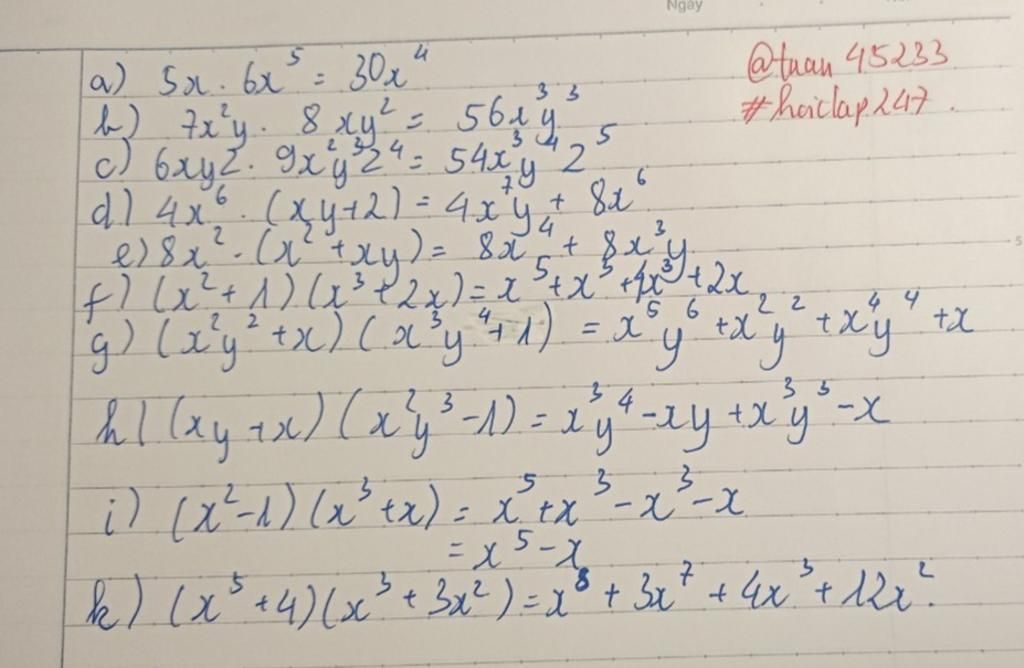 Ngày
@tuan 45233
#hoidap247.
a) 5x . 6x⁵ = 30x⁴
b) 7x²y . 8xy² = 56x³y³
c) 6xyz . 9x²y³z⁴ = 54x³y⁴z⁵
d) 4x⁶ . (xy+2) = 4x⁷y + 8x⁶
e) 8x² . (x² + xy) = 8x⁴ + 8x³y
f) (x² + 1) (x³ + 2x) = x⁵ + x³ + 4x³ + 2x
g) (x²y² + x) (x³y⁴ + 1) = x⁵y⁶ + x²y² + x⁴y⁴ + x
h) (xy + x) (x²y³ - 1) = x³y⁴ - xy + x³y³ - x
i) (x² - 1) (x³ + x) = x⁵ + x³ - x³ - x
= x⁵ - x
k) (x⁵ + 4) (x³ + 3x²) = x⁸ + 3x⁷ + 4x³ + 12x².